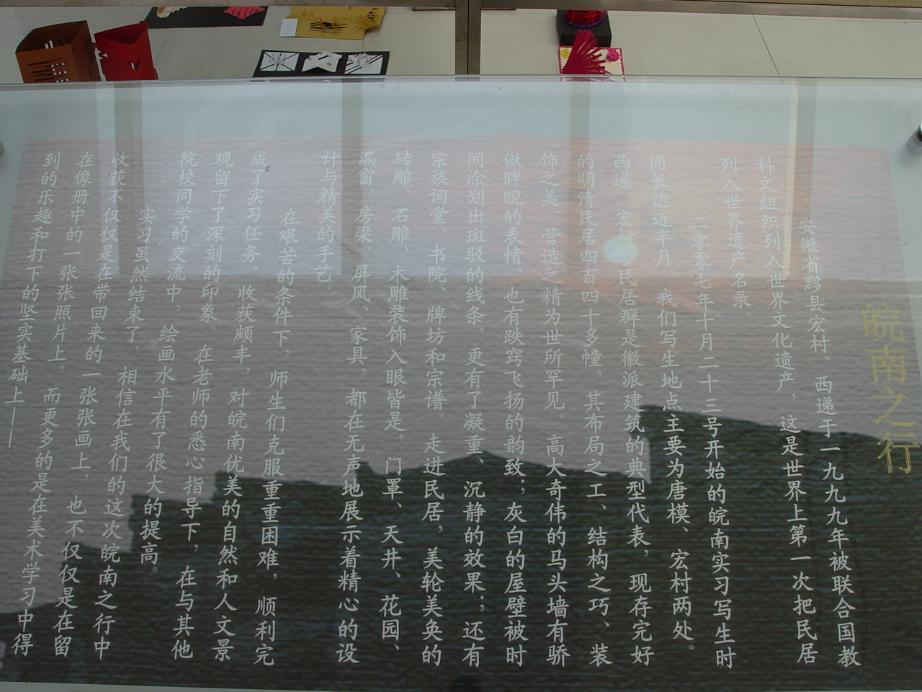 皖南之行
安徽省黟县宏村、西递于一九九九年被联合国教
科文组织列入世界文化遗产，这是世界上第一次把民居
列入世界遗产名录
二零零七年十月二十三号开始的皖南实习写生时
间长达近半月，我们写生地点主要为唐模、宏村两处。
西递、宏村民居群是徽派建筑的典型代表，现存完好
的明清民居四百四十多幢 其布局之工、结构之巧、装
饰之美、营造之精为世所罕见 高大奇伟的马头墙有骄
傲睥睨的表情，也有跌窍飞扬的韵致；灰白的屋壁被时
间涂划出斑驳的线条，更有了凝重、沉静的效果；还有
宗族词堂、书院、牌坊和宗谱。走进民居，美轮美奂的
砖雕、石雕、木雕装饰入眼皆是，门罩、天井、花园、
漏窗、房梁、屏风、家具，都在无声地展示着精心的设
计与精美的手艺
在艰苦的条件下，师生们克服重重困难，顺利完
成了实习任务，收获颇丰，对皖南优美的自然和人文景
观留下了深刻的印象。在老师的悉心指导下，在与其他
院校同学的交流中 绘画水平有了很大的提高。
实习虽然结束了，相信在我们的这次皖南之行中
收获不仅仅是在带回来的一张张画上 也不仅仅是在留
在像册中的一张张照片上，而更多的是在美术学习中得
到的乐趣和打下的坚实基础上——